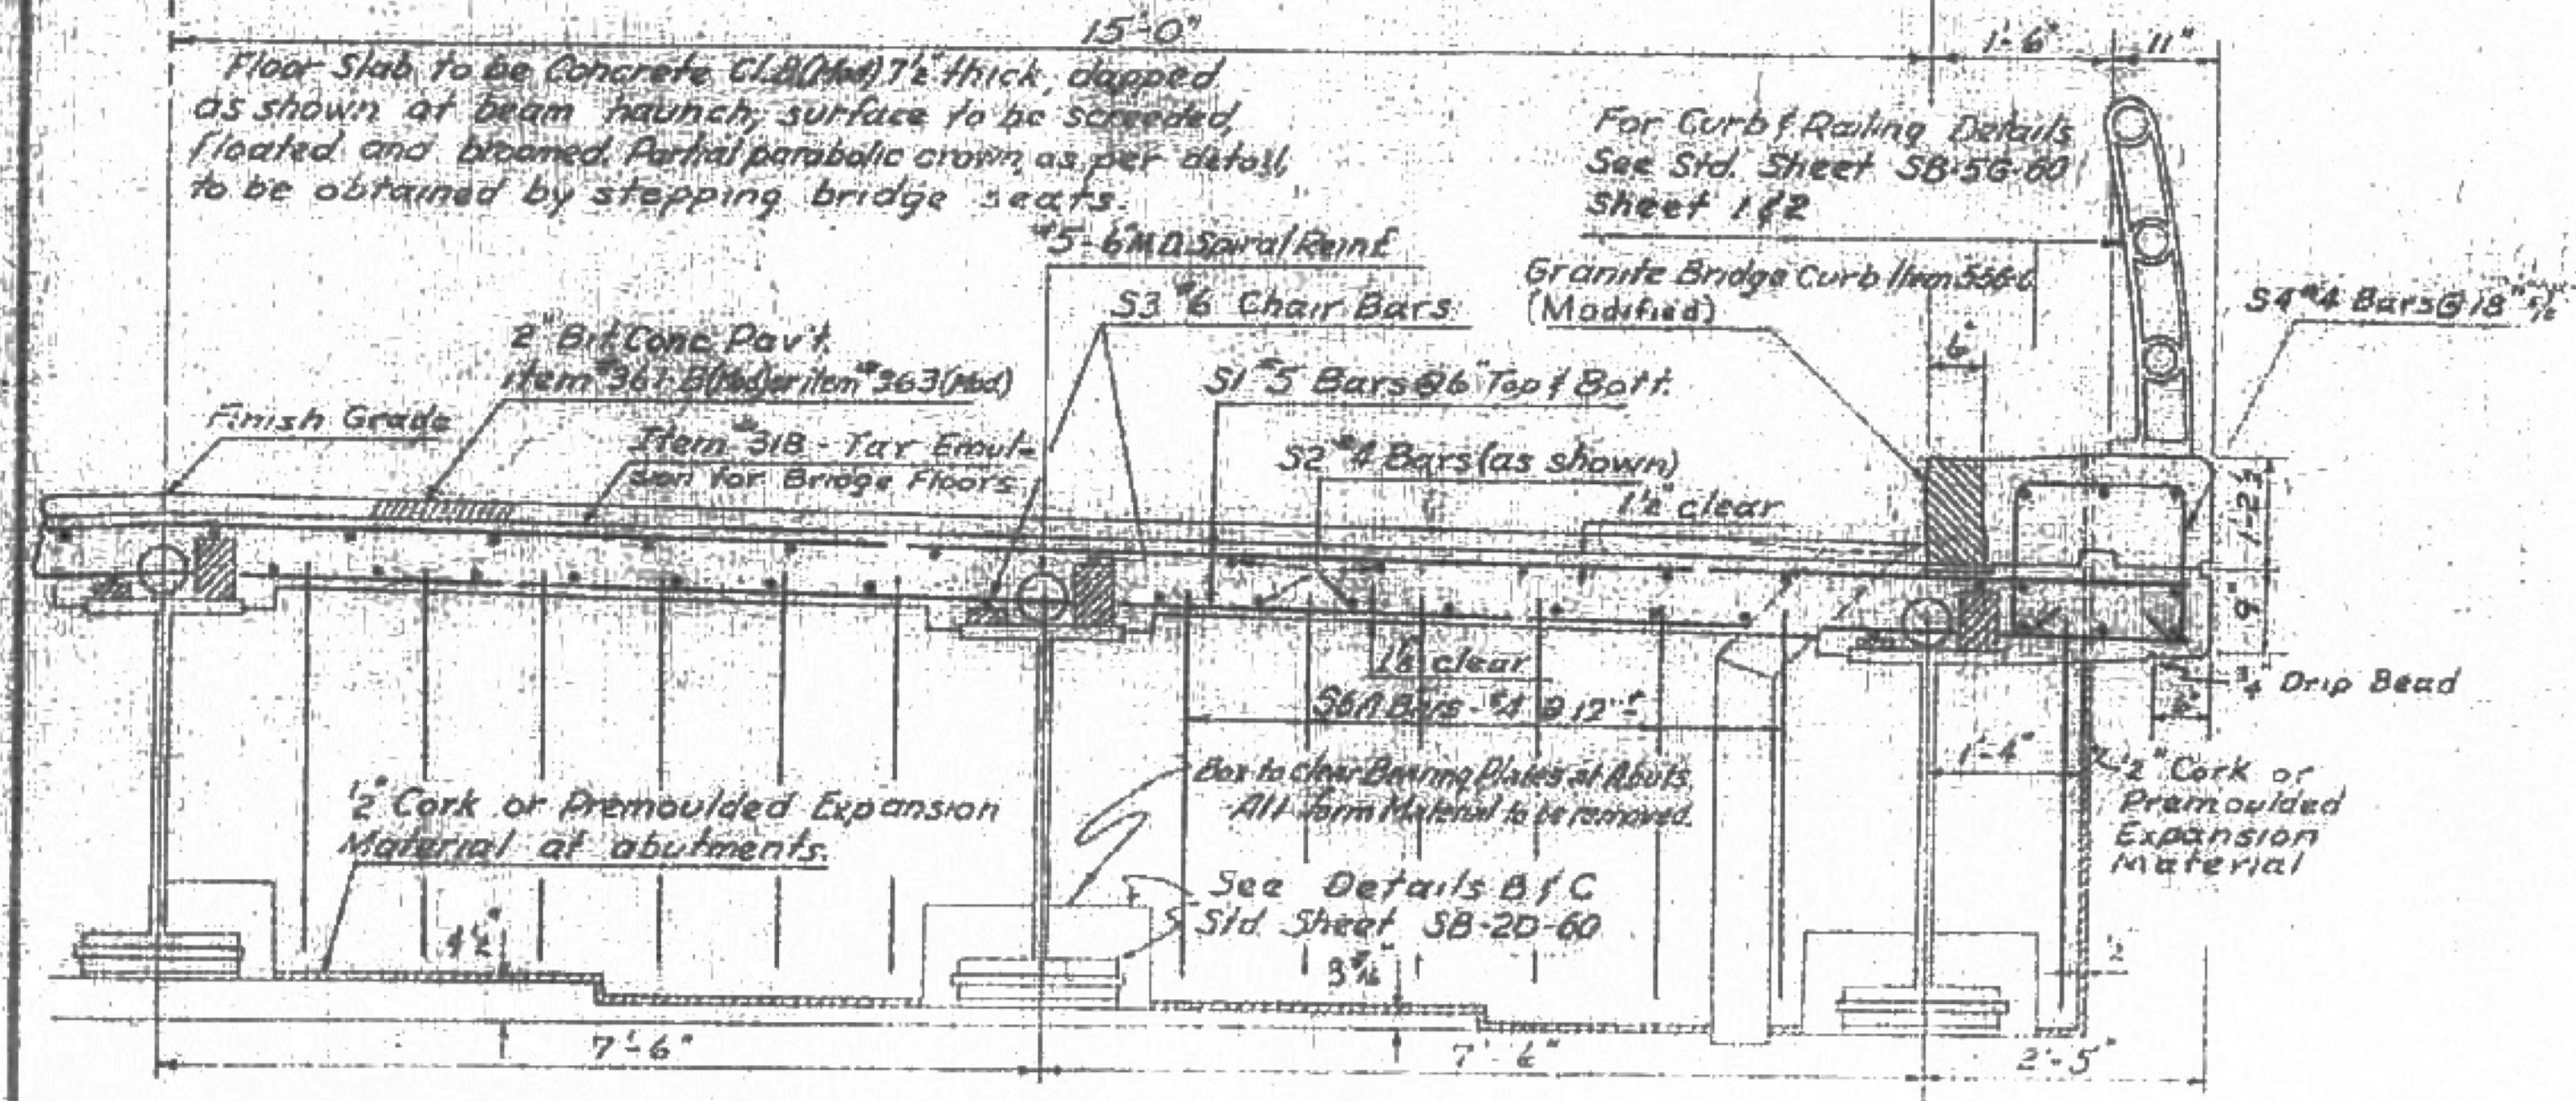 15'-0"
1'-6"
11"
Floor Slab to be Concrete Cl.B(Mod) 7½" thick, dapped
as shown at beam haunch; surface to be screeded,
floated and broomed. Partial parabolic crown, as per detail,
to be obtained by stepping bridge seats.
For Curb & Railing Details
See Std. Sheet SB-5G-60
Sheet 1 & 2
Spiral Reinf.
Granite Bridge Curb Item
(Modified)
S3 #6 Chair Bars
S4 #4 Bars @ 18"
6"
2" Bit. Conc. Pav't.
item #361-B(Mod) or item #363(Mod)
S1 #5 Bars @ 6" Top & Bott.
Finish Grade
Item #318 - Tar Emul-
sion for Bridge Floors
S2 #4 Bars (as shown)
1½" clear
1'-2½"
9"
clear
¾" Drip Bead
Bars - #4 @ 12"
1'-4"
Box to clear Bearing Plates at Abuts.
All form Material to be removed.
½" Cork or
Premoulded
Expansion
Material
½" Cork or Premoulded Expansion
Material at abutments.
See Details B & C
Std. Sheet SB-2D-60
4½"
7'-6"
7'-6"
2'-5"